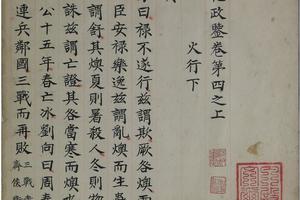 政鑒卷第四之上
火行下
曰禄不遂行兹謂欺厥咎燠
臣安禄樂逸兹謂亂燠而生
謂舒其燠夏則暑殺人冬則物
誅兹謂亡證其咎當寒而燠
公十五年春亡冰劉向曰周春
連兵鄰國三戰而再敗